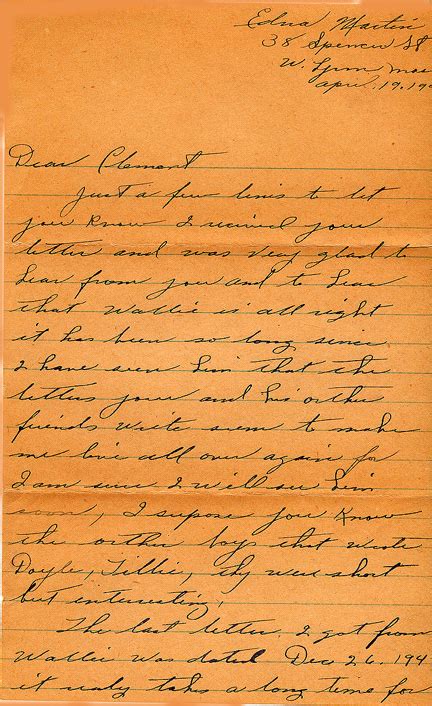 Edna Martin
38 Spencer St
W. Lynn Mass
April. 19. 19
Dear Clement
Just a few lines to let
you know I received your
letter and was very glad to
hear from you and to hear
that Wallie is all right
it has been so long since
I have seen him that the
letters your and his orther
friends write seem to make
me live all over again for
I am sure I will see him
soon, I supose you know
the orther boys that wrote
Doyle, Tillie, thy were short
but interesting.
The last letter I got from
Wallie was dated Dec 26. 194
it realy takes a long time for